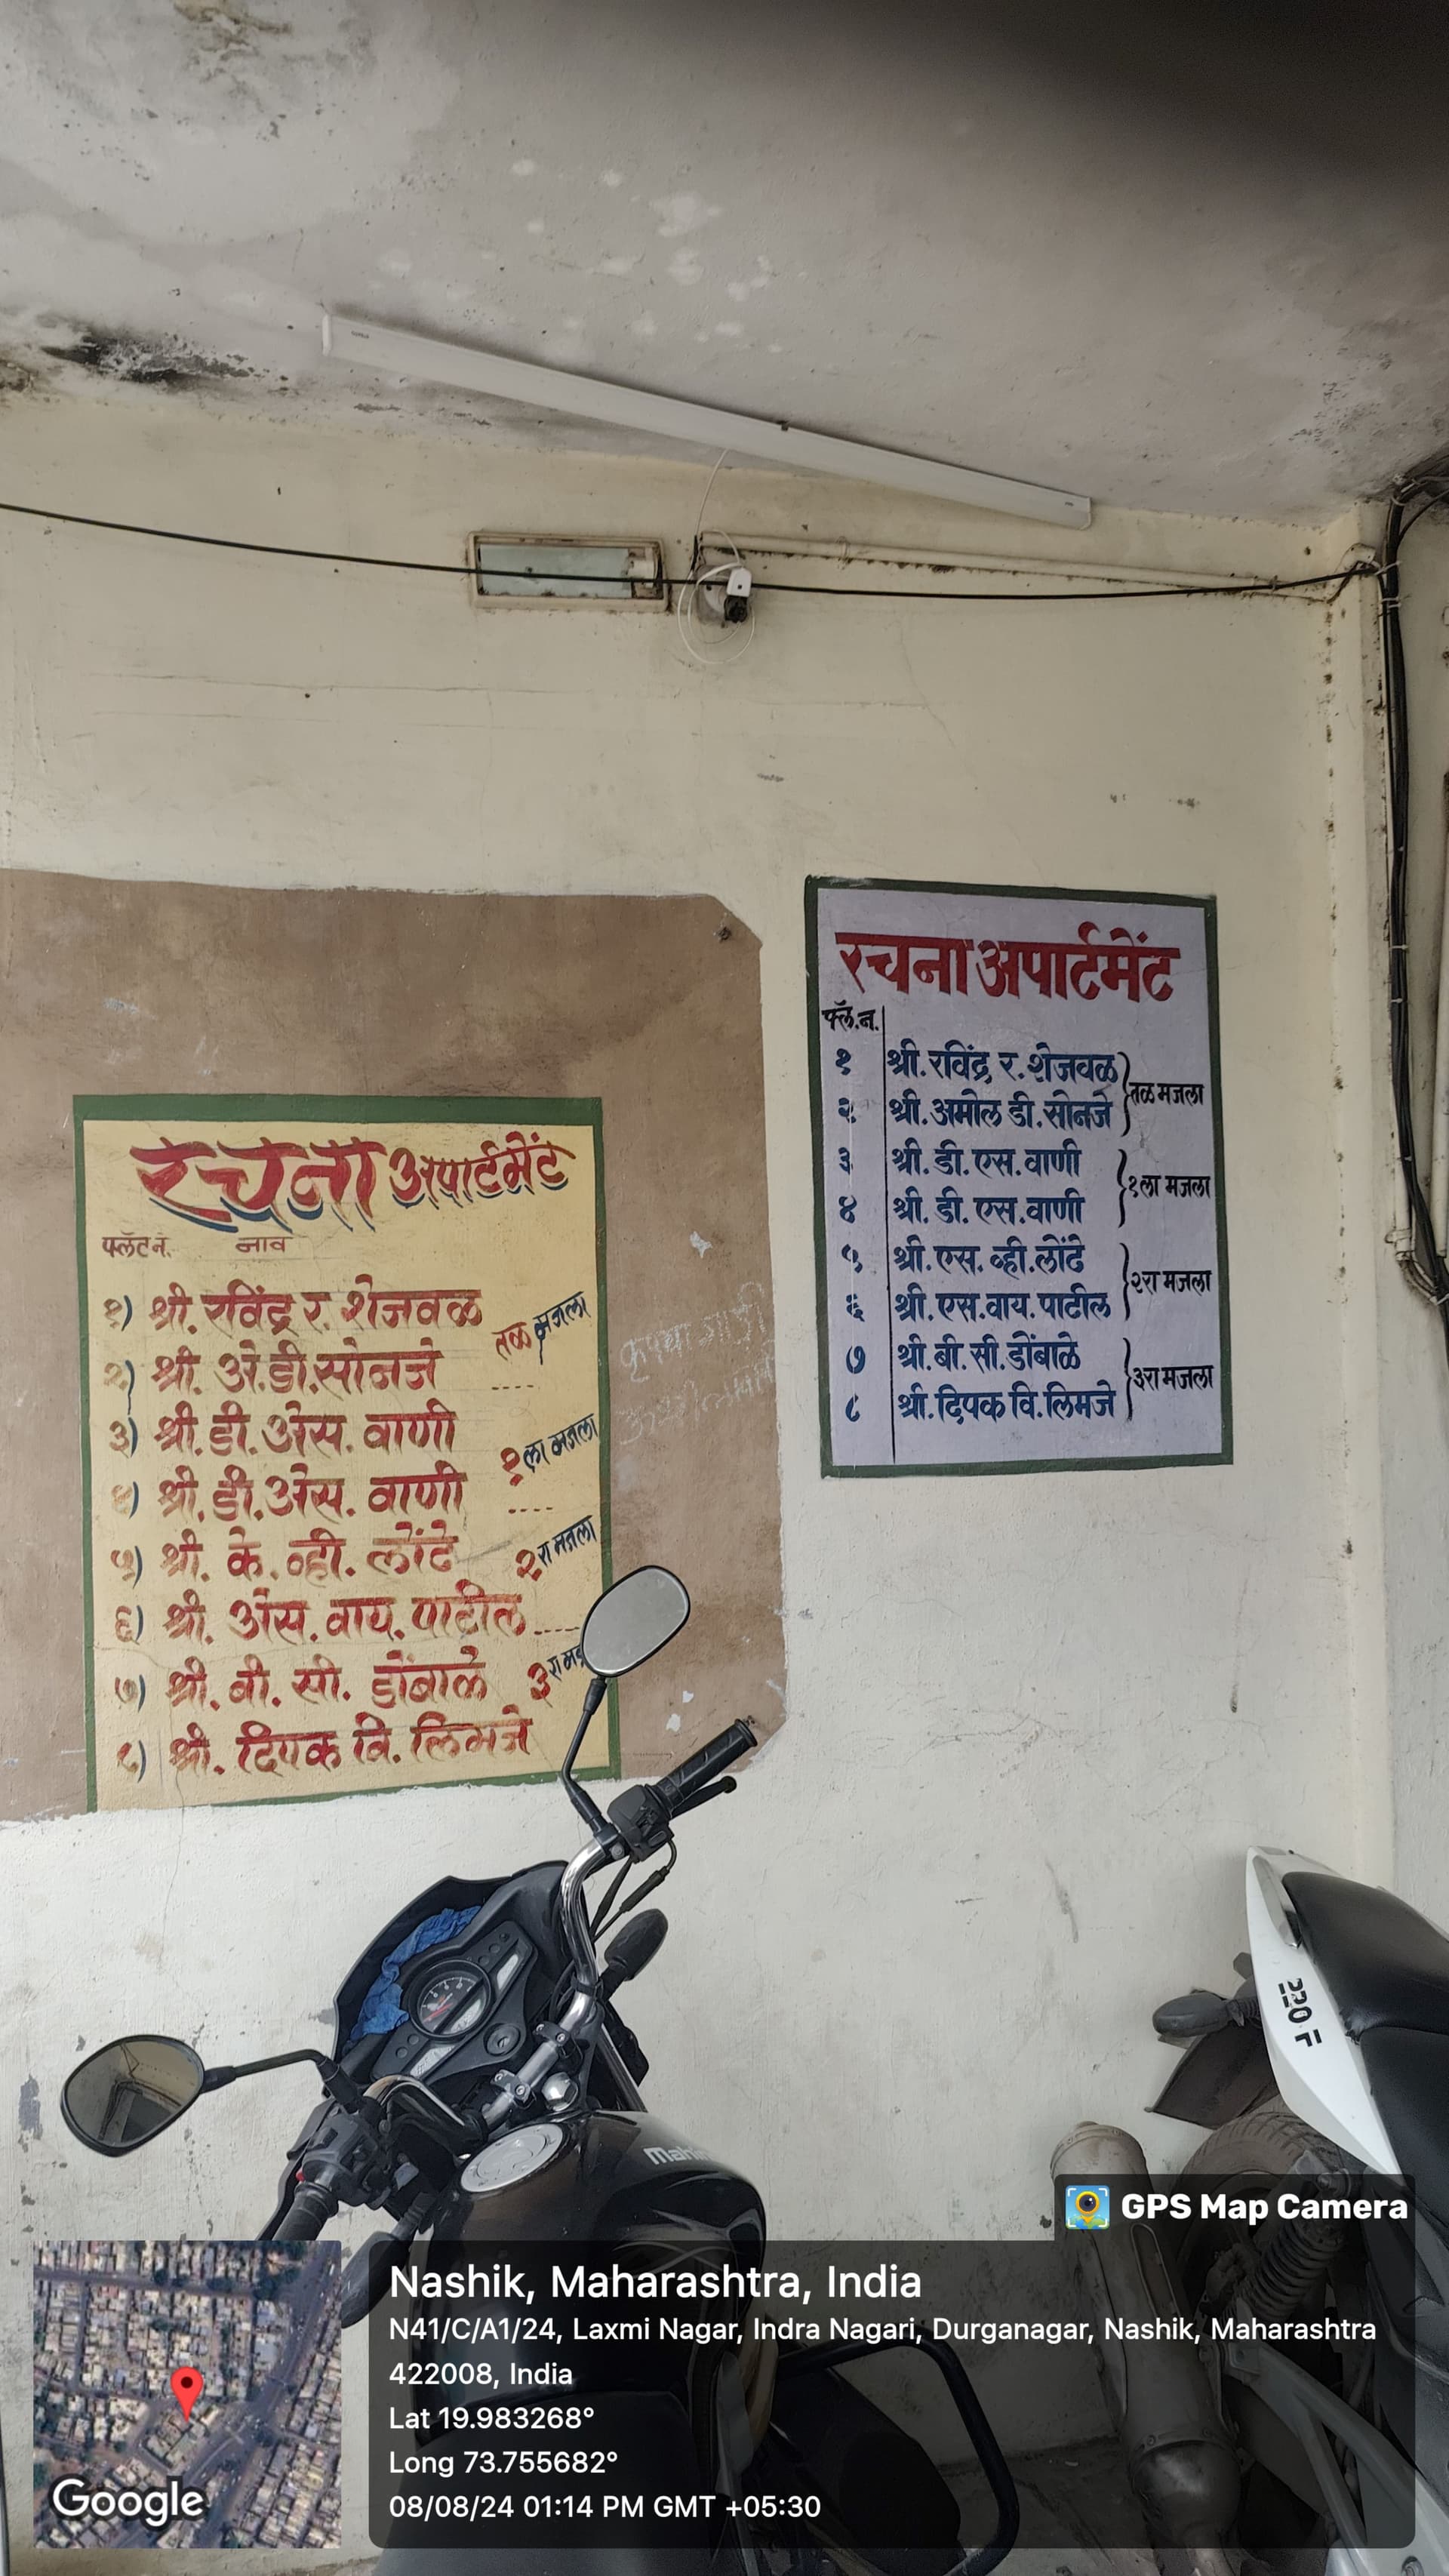 रचना अपार्टमेंट
फ्लॅट नं. नाव
१) श्री. रविंद्र र. शेजवळ तळ मजला
२) श्री. अे.डी. सोनजे ----
३) श्री. डी. अेस. वाणी १ला मजला
४) श्री. डी. अेस. वाणी ----
५) श्री. के. व्ही. लोंढे २रा मजला
६) श्री. अेस. वाय. पाटील ----
७) श्री. बी. सी. डोंबाळे ३रा
८) श्री. दिपक वि. लिमजे
कृपया गाडी
रचना अपार्टमेंट
फ्लॅ.न.
१ श्री. रविंद्र र. शेजवळ
२ श्री. अमोल डी. सोनजे
तळ मजला
३ श्री. डी. एस. वाणी
४ श्री. डी. एस. वाणी
१ला मजला
५ श्री. एस. व्ही. लोंढे
६ श्री. एस. वाय. पाटील
२रा मजला
७ श्री. बी. सी. डोंबाळे
८ श्री. दिपक वि. लिमजे
३रा मजला
220 F
GPS Map Camera
Google
Nashik, Maharashtra, India
N41/C/A1/24, Laxmi Nagar, Indra Nagari, Durganagar, Nashik, Maharashtra
422008, India
Lat 19.983268°
Long 73.755682°
08/08/24 01:14 PM GMT +05:30